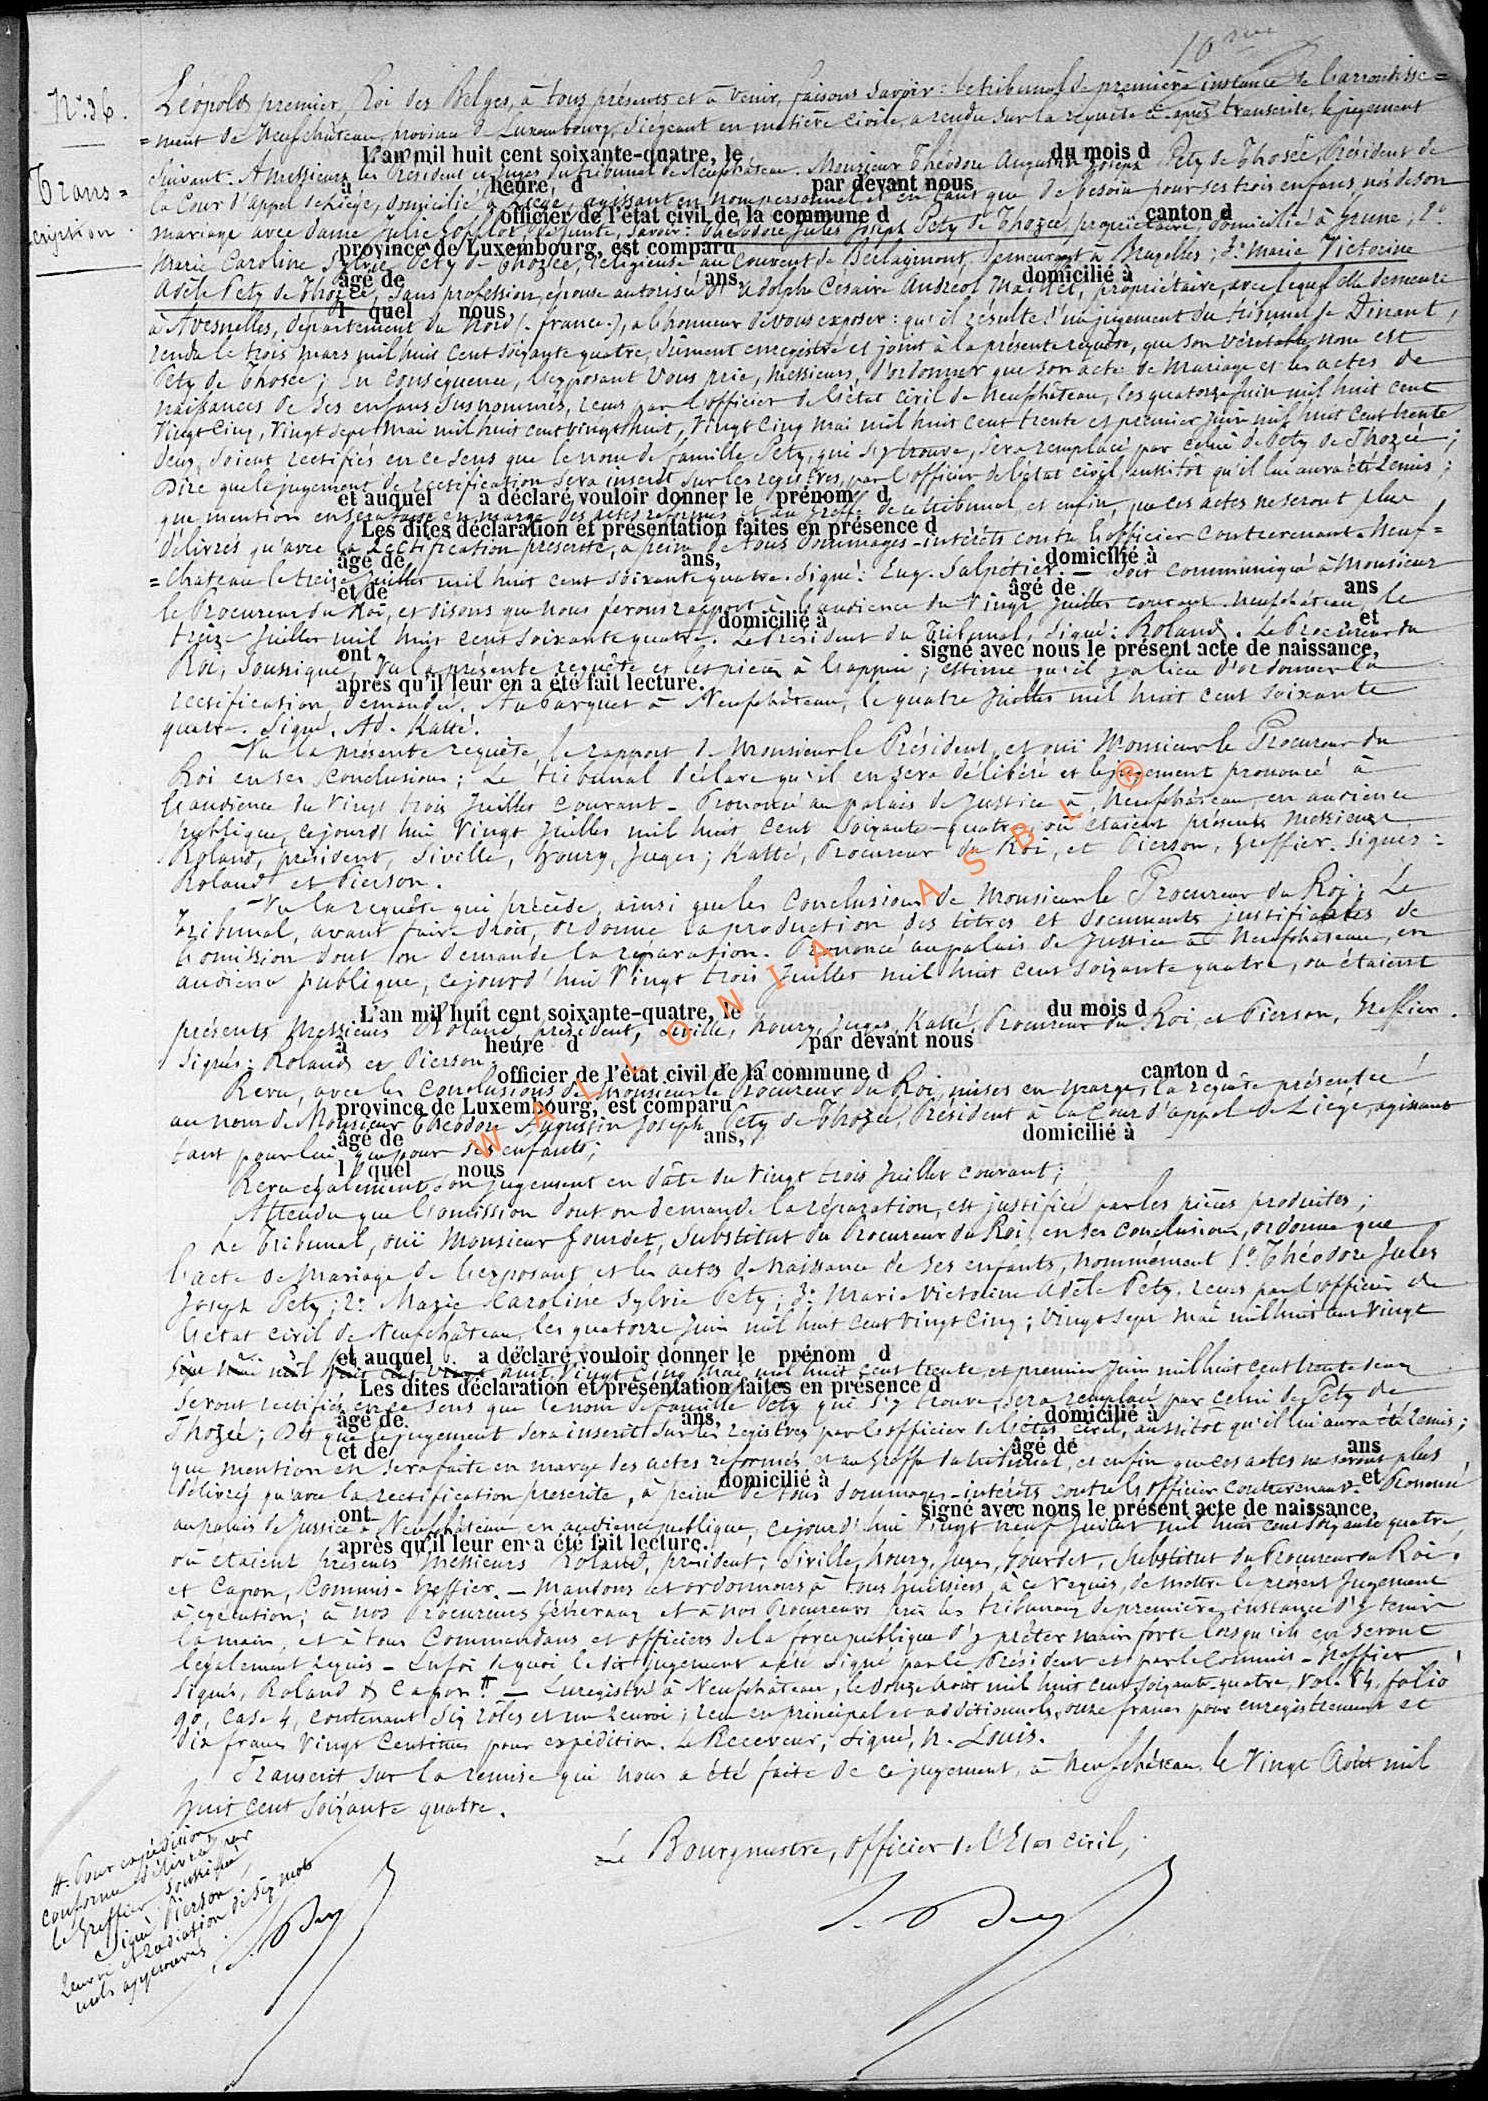 10
N° 36.
Trans=
cription.
Léopold premier, Roi des Belges, à tous présents et à venir, faisons savoir : le tribunal de première instance de l'arrondisse=
=ment de Neufchâteau, province de Luxembourg, siégeant en matière civile, a rendu sur la requête ci-après transcrite, le jugement
L'an mil huit cent soixante-quatre, le du mois d
suivant. A messieurs les Président et Juges du tribunal de Neufchâteau. Monsieur Théodore Augustin Joseph Pety de Thozée, Président de
à heure d par devant nous
la Cour d'appel de Liége, domicilié à Liége, agissant en nom personnel et en tant que de besoin pour ses trois enfants, nés de son
officier de l'état civil de la commune d canton d
mariage avec dame Julie défunte, savoir : Théodore Jules Joseph Pety de Thozée, propriétaire, domicilié à Grune ; 2°
province de Luxembourg, est comparu
Marie Caroline Sylvie Pety de Thozée, religieuse au couvent de Berlaymont, demeurant à Bruxelles ; 3° Marie Victorine
âgé de ans, domicilié à
Adèle Pety de Thozée, sans profession, épouse autorisée d'Adolphe Césaire Andréol propriétaire, avec lequel elle demeure
l quel nous
à Avesnelles, département du Nord (france), a l'honneur de vous exposer : qu'il résulte d'un jugement du tribunal de Dinant,
rendu le trois mars mil huit cent soixante quatre, dûment enregistré et joint à la présente requête, que son véritable nom est
Pety de Thozée ; En conséquence, l'exposant vous prie, Messieurs, d'ordonner que son acte de mariage et les actes de
naissances de ses enfans susnommés, reçus par l'officier de l'état civil de Neufchâteau, les quatorze Juin mil huit cent
vingt cinq, vingt sept mai mil huit cent vingt huit, vingt cinq mai mil huit cent trente et premier juin mil huit cent trente
deux, soient rectifiés en ce sens que le nom de famille Pety, qui s'y trouve, sera remplacé par celui de Pety de Thozée ;
Dire que le jugement de rectification sera inscrit sur les registres, par l'officier de l'état civil, aussitôt qu'il lui aura été remis ;
et auquel a déclaré vouloir donner le prénom d
que mention en sera faite en marge des actes réformés et au greffe de ce tribunal, et enfin, que ces actes ne seront plus
Les dites déclaration et présentation faites en présence d
délivrés qu'avec la rectification prescrite, à peine de tous dommages-intérêts contre l'officier contrevenant. Neuf=
âgé de ans, domicilié à
=château le treize juillet mil huit cent soixante quatre. Signé : Eug. Salpétier. — Soit communiqué à Monsieur
et de âgé de ans
le Procureur du Roi, et disons que nous ferons rapport à l'audience du vingt juillet courant. Neufchâteau, le
domicilié à et
treize juillet mil huit cent soixante quatre. Le Président du Tribunal, signé : Roland. Le Procureur du
ont signé avec nous le présent acte de naissance,
Roi, soussigné, Vu la présente requête et les pièces à l'appui ; estime qu'il y a lieu d'ordonner la
après qu'il leur en a été fait lecture.
rectification demandée. Au parquet à Neufchâteau, le quatre juillet mil huit cent soixante
quatre. Signé, Ad. Katté.
Vu la présente requête, le rapport de Monsieur le Président, et ouï Monsieur le Procureur du
Roi en ses conclusions ; Le tribunal déclare qu'il en sera délibéré et le jugement prononcé à
l'audience du vingt trois juillet courant - Prononcé au palais de justice à Neufchâteau, en audience
publique, ce jourd'hui vingt juillet mil huit cent soixante-quatre, où étaient présents messieurs
Roland, président, Siville, Houry, juges ; Katté, Procureur du Roi, et Pierson, Greffier. Signés :
Roland et Pierson.
Vu la requête qui précède, ainsi que les conclusions de Monsieur le Procureur du Roi ; Le
Tribunal, avant faire droit, ordonne la production des titres et documents justificatifs de
l'omission dont on demande la réparation. Prononcé au palais de Justice à Neufchâteau, en
audience publique, ce jourd'hui vingt trois juillet mil huit cent soixante quatre, où étaient
L'an mil huit cent soixante-quatre, le du mois d
présents Messieurs Roland, président, Siville, Houry, Juges, Katté, Procureur du Roi, et Pierson, Greffier.
à heure d par devant nous
Signés : Roland et Pierson.
officier de l'état civil de la commune d canton d
Revu, avec les conclusions de Monsieur le Procureur du Roi, mises en marge, la requête présentée
province de Luxembourg, est comparu
au nom de Monsieur Théodore Augustin Joseph Pety de Thozée, Président à la Cour d'appel de Liége, agissant
âgé de ans, domicilié à
tant pour lui que pour ses enfants ;
l quel nous
Revu également son jugement en date du vingt trois juillet courant ;
Attendu que l'omission dont on demande la réparation, est justifiée par les pièces produites ;
Le Tribunal, ouï Monsieur Jourdet, Substitut du Procureur du Roi, en ses conclusions, ordonne que
l'acte de mariage de l'exposant et les actes de naissance de ses enfants, nommément 1° Théodore Jules
Joseph Pety ; 2° Marie Caroline Sylvie Pety ; 3° Marie Victorine Adèle Pety, reçus par l'officier de
l'état civil de Neufchâteau, les quatorze juin mil huit cent vingt cinq ; vingt sept mai mil huit cent vingt
et auquel a déclaré vouloir donner le prénom d
huit, vingt cinq mai mil huit cent trente, et premier juin mil huit cent trente deux
Les dites déclaration et présentation faites en présence d
seront rectifiés en ce sens que le nom de famille Pety qui s'y trouve, sera remplacé par celui de Pety de
âgé de ans, domicilié à
Thozée ; Dit que le jugement sera inscrit sur les registres par l'officier de l'état civil, aussitôt qu'il lui aura été remis ;
et de âgé de ans
que mention en sera faite en marge des actes réformés et au greffe du tribunal, et enfin que ces actes ne seront plus
domicilié à et
délivrés qu'avec la rectification prescrite, à peine de tous dommages-intérêts contre l'officier contrevenant. Prononcé
ont signé avec nous le présent acte de naissance,
au palais de Justice à Neufchâteau, en audience publique, ce jourd'hui vingt neuf juillet mil huit cent soixante quatre,
après qu'il leur en a été fait lecture.
où étaient présents Messieurs Roland, président, Siville, Houry, Juges, Jourdet, Substitut du Procureur du Roi,
et Capon, Commis-Greffier. — Mandons et ordonnons à tous huissiers, à ce requis, de mettre le présent jugement
à exécution ; à nos Procureurs Généraux et à nos Procureurs près les tribunaux de première instance d'y tenir
la main, et à tous Commandans et officiers de la force publique d'y prêter main forte lorsqu'ils en seront
légalement requis - En foi de quoi le dit jugement a été signé par le Président et par le Commis-Greffier,
Signés, Roland & Capon. # — Enregistré à Neufchâteau, le douze Août mil huit cent soixante-quatre, vol. 14, folio
90, case 4, contenant six rôles et un renvoi ; reçu en principal et additionnels, onze francs pour enregistrement et
dix francs vingt centimes pour expédition. Le Receveur, signé, N. Louis.
Transcrit sur la remise qui nous a été faite de ce jugement, à Neufchâteau, le vingt Août mil
huit cent soixante quatre.
Le Bourgmestre, officier de l'Etat civil,
#. Pour expédition
conforme délivrée par
le Greffier soussigné,
Signé Pierson,
renvoi et radiation de six mots
nuls approuvés.
WALLONIA ASBL ®